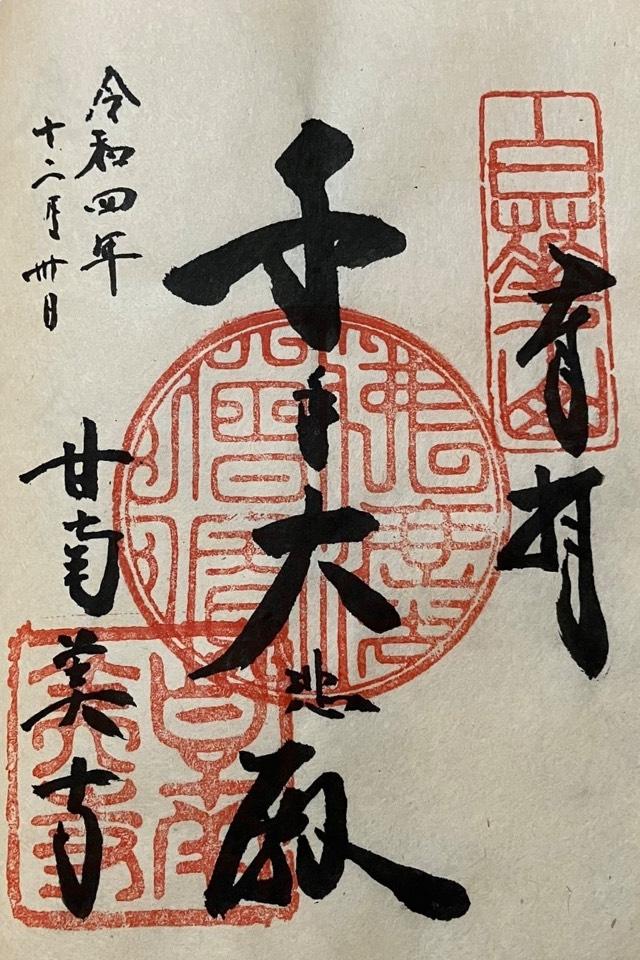 奉拝
千手大悲殿
令和四年
十二月卅日
甘南美寺
甘南
美寺